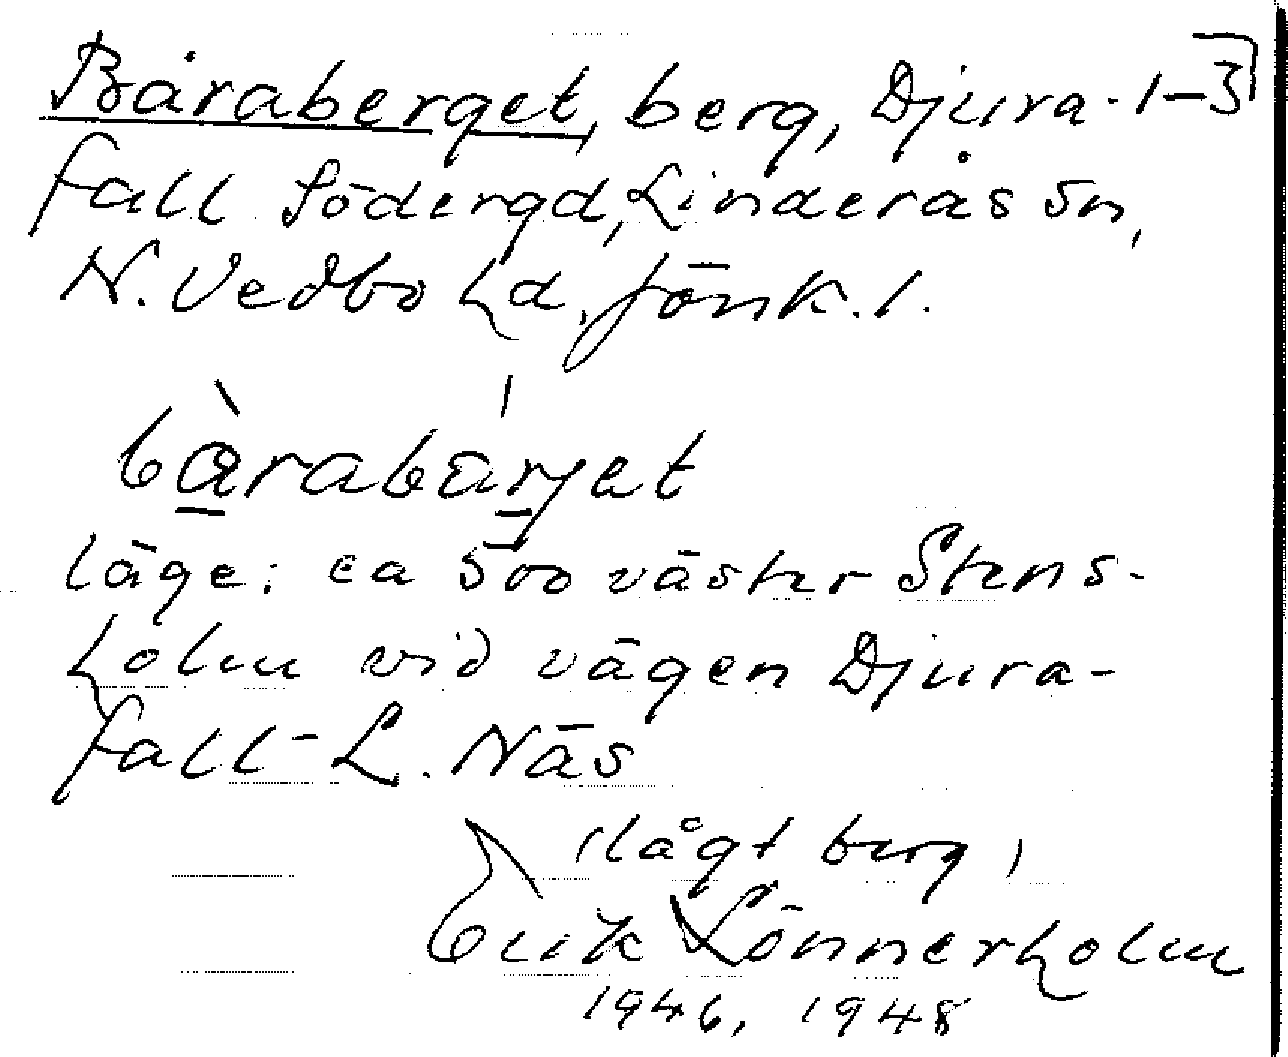 Båraberget, berg, Djura- 1-3
fall Södergd, Linderås sn,
N. Vedbo hd, Jönk. l.
bàrabärjet
läge: ca 500 väster Stens-
holm vid vägen Djura-
fall - L. Näs
(lågt berg)
Erik Lönnerholm
1946, 1948